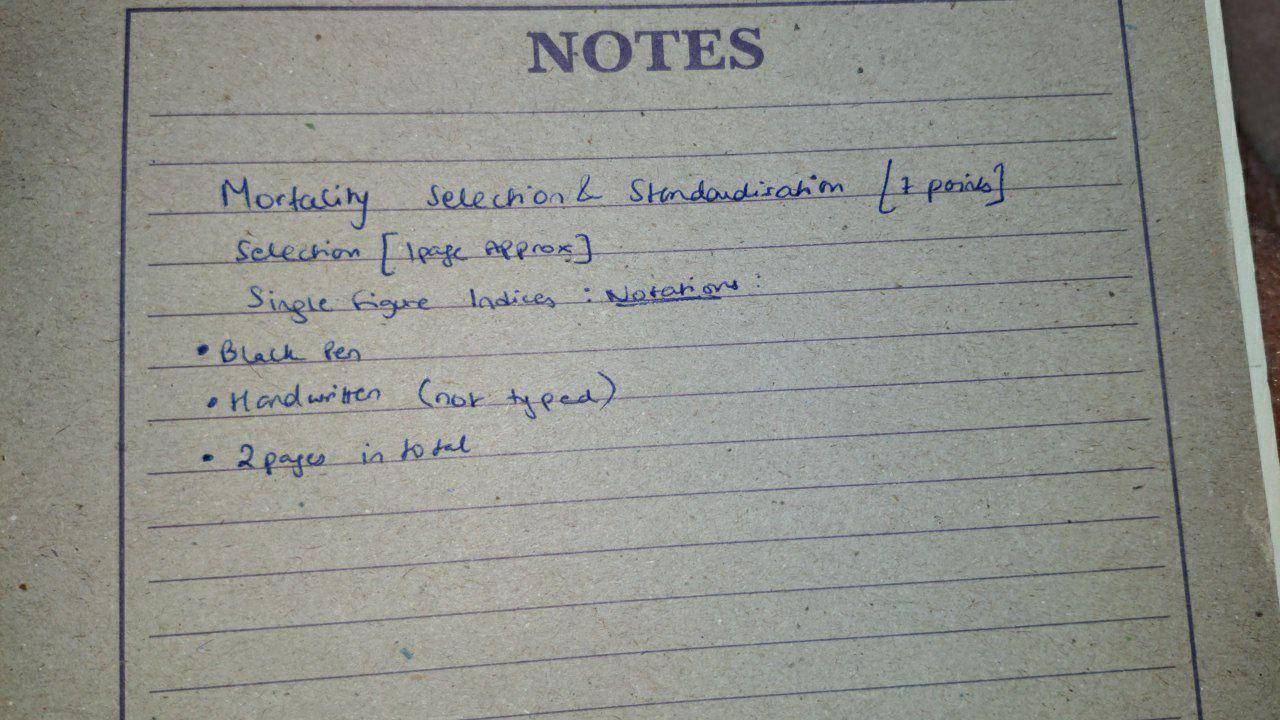 NOTES
Mortality Selection & Standardisation [7 points]
Selection [1page Approx]
Single Figure Indices : Notations :
• Black Pen
• Handwritten (not typed)
• 2 pages in total